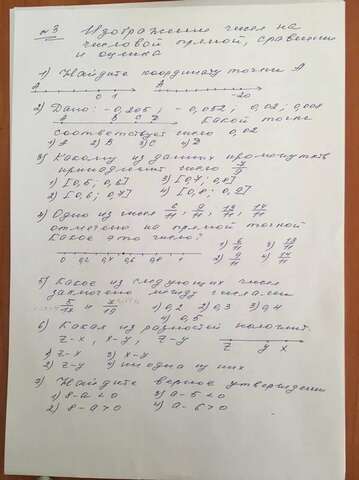 №3 Изображение чисел на
числовой прямой, сравнение
и оценка
1) Найдите координату точки А
А 0 1 А -20
2) Дано: -0,205; -0,052; 0,02; 0,008
А В С D Какой точке
соответствует число 0,02
1) А 2) В 3) С 4) D
3) Какому из данных промежутков
принадлежит число
1) [0,5; 0,6] 3) [0,7; 0,8]
2) [0,6; 0,7] 4) [0,8; 0,9]
4) Одно из чисел 6/11; 9/11; 13/11; 14/11
отмечено на прямой точкой
Какое это число? 1) 6/11 3) 13/11
0 0,2 0,4 0,6 0,8 1 2) 9/11 4) 14/11
5) Какое из следующих чисел
заключено между числами
и 1) 0,2 2) 0,3 3) 0,4
4) 0,5
6) Какая из разностей положит.
z-x, x-y, z-y z y x
1) z-x 3) x-y
2) z-y 4) ни одна из них
7) Найдите верное утверждение
1) 8-а<0 3) а-5<0
2) 8-а>0 4) а-6>0